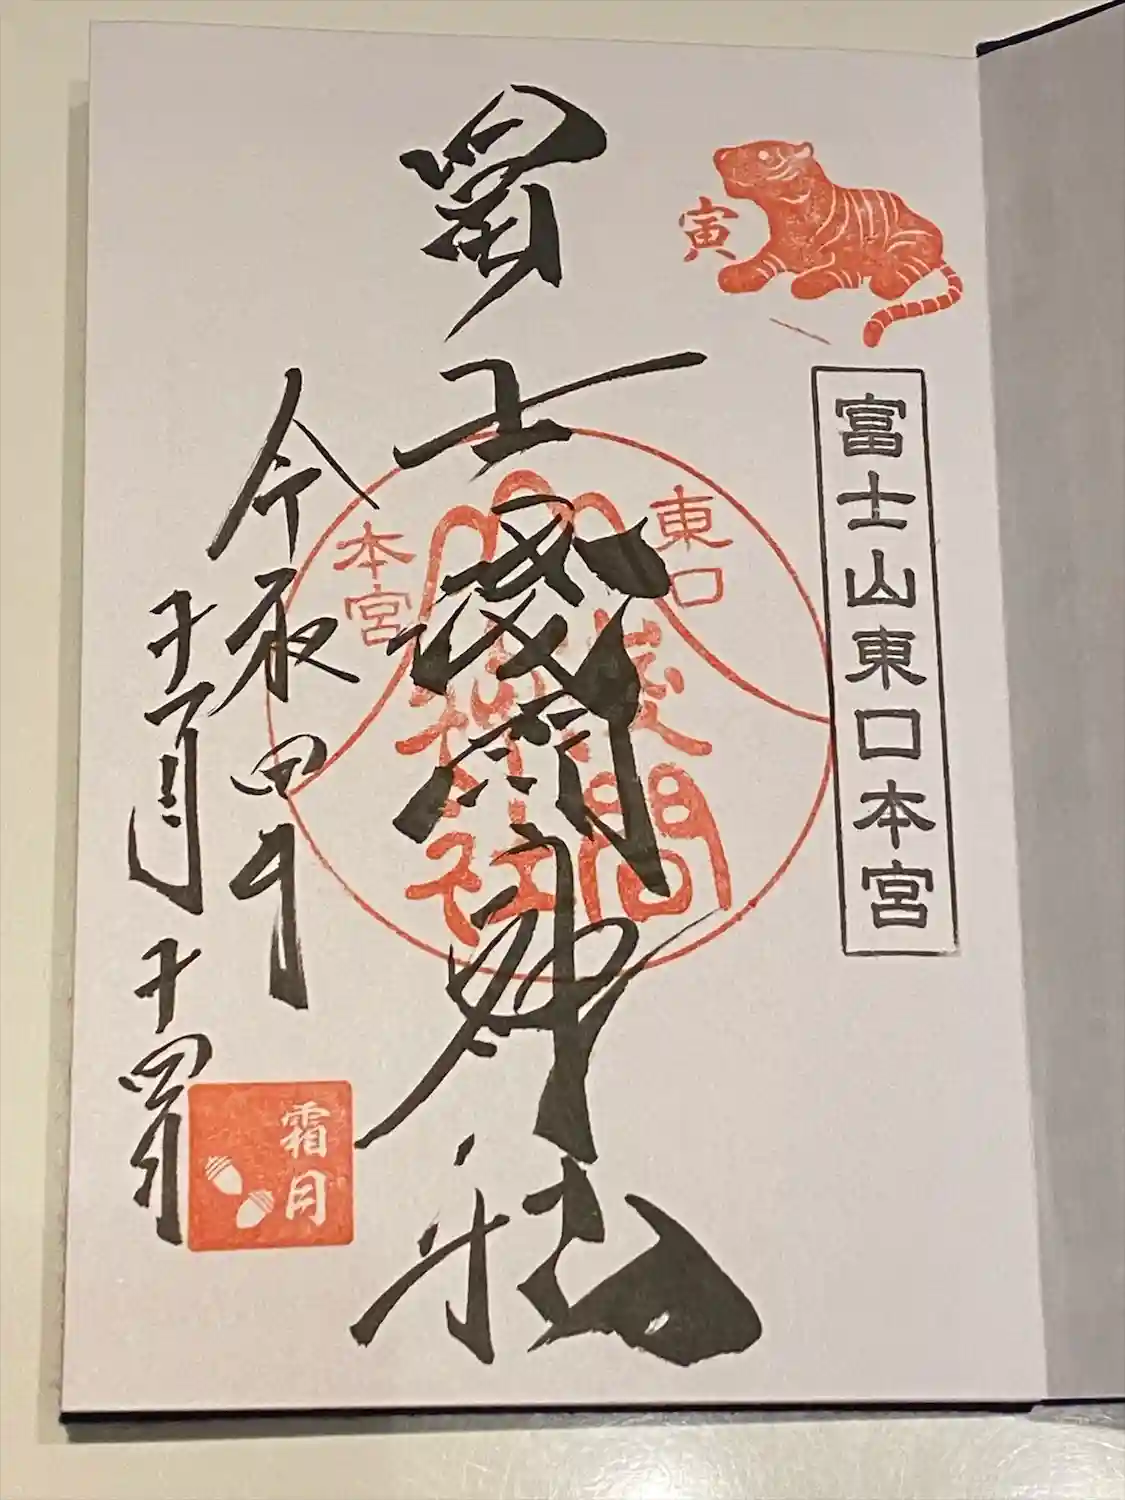 寅
富士山東口本宮
冨士浅間神社
東口
本宮
浅間
神社
令和四年
十一月二十四日
霜月